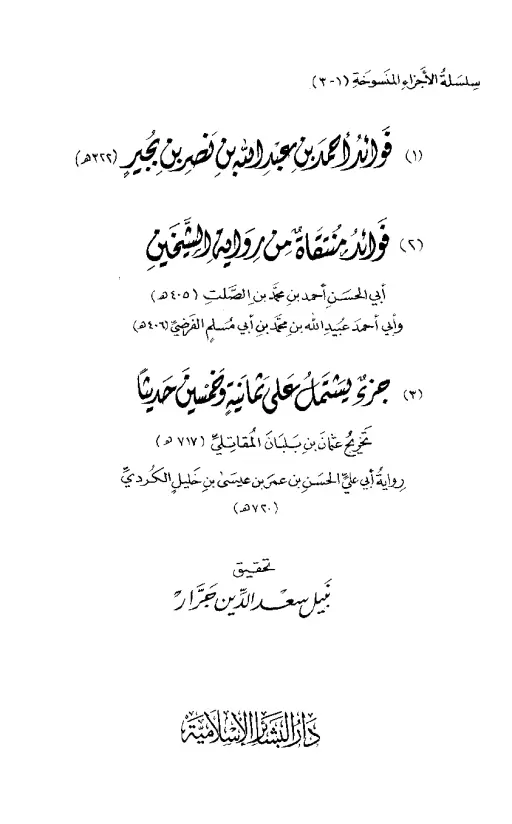 سِلسِلَةُ الأَجزَاءِ المَنسُوخَةِ (١-٣)
(١) فَوَائِدُ أَحْمَدَ بْنِ عَبْدِ اللهِ بْنِ نَصْرِ بْنِ بُجَيْرٍ (٣٢٢هـ)
(٢) فَوَائِدُ مُنْتَقَاةٌ مِنْ رِوَايَةِ الشَّيْخَيْنِ
أبي الحسَنِ أحمَد بنِ محمَّد بنِ الصَّلتِ (٤٠٥هـ)
وأبي أحمَد عُبيدِ الله بنِ محمَّد بنِ أبي مُسلمٍ الفَرَضيِّ (٤٠٦هـ)
(٣) جُزءٌ يَشْتَمِلُ عَلَى ثَمَانِيَةٍ وَخَمْسِينَ حَدِيثًا
تَخريجُ عثمَانَ بنِ بَلبَانَ المُقَاتِليِّ (٧١٧هـ)
روايَةُ أبي عَليٍّ الحسَنِ بن عمَرَ بن عيسَىٰ بنِ خَليلٍ الكُرديِّ
(٧٢٠هـ)
تحقيق
نَبيل سَعد الدِّين جَرَّار
دَارُ البَشَائِرِ الإِسْلَامِيَّة